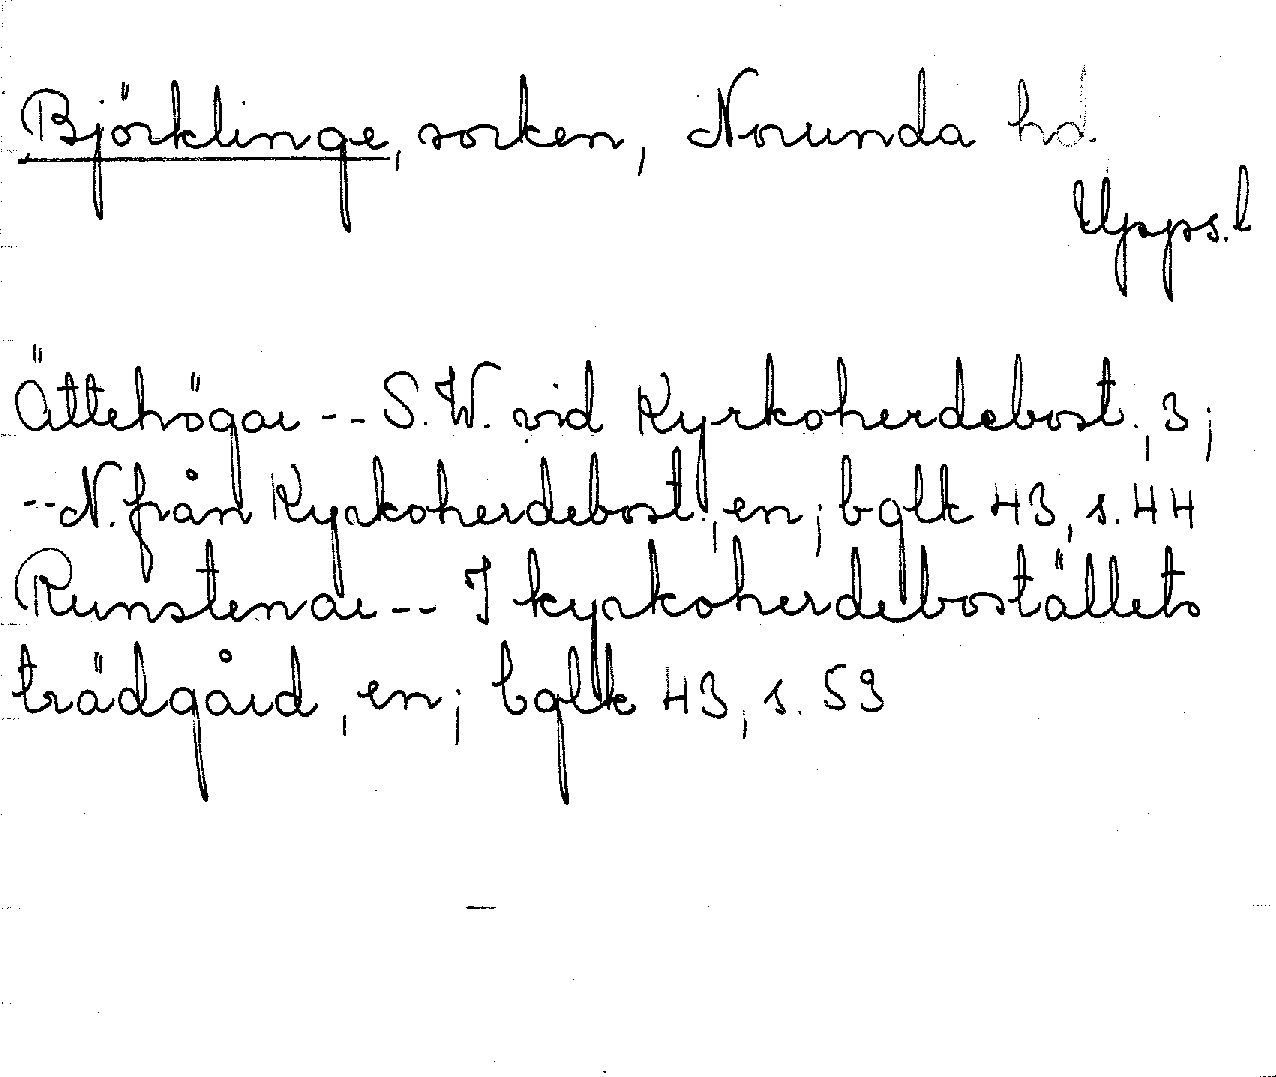 Björklinge, socken, Norunda hd.
Upps. l
Ättehögar -- S.W. vid Kyrkoherdebost., 3;
-- N. från Kyrkoherdebost., en; bglk 43, s. 44
Runstenar -- I kyrkoherdebostället
trädgård, en; bglk 43, s. 53